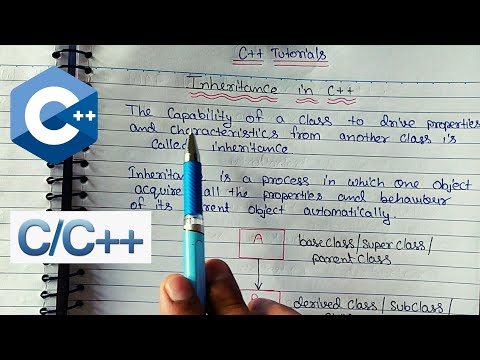 C++ Tutorials
Inheritance in C++
The Capability of a class to drive properties
and characteristics from another class is
called inheritance
Inheritance is a process in which one object
acquire all the properties and behaviour
of its parent object automatically.
A
base class/super class/
parent class
derived class/subclass/
C++
C/C++